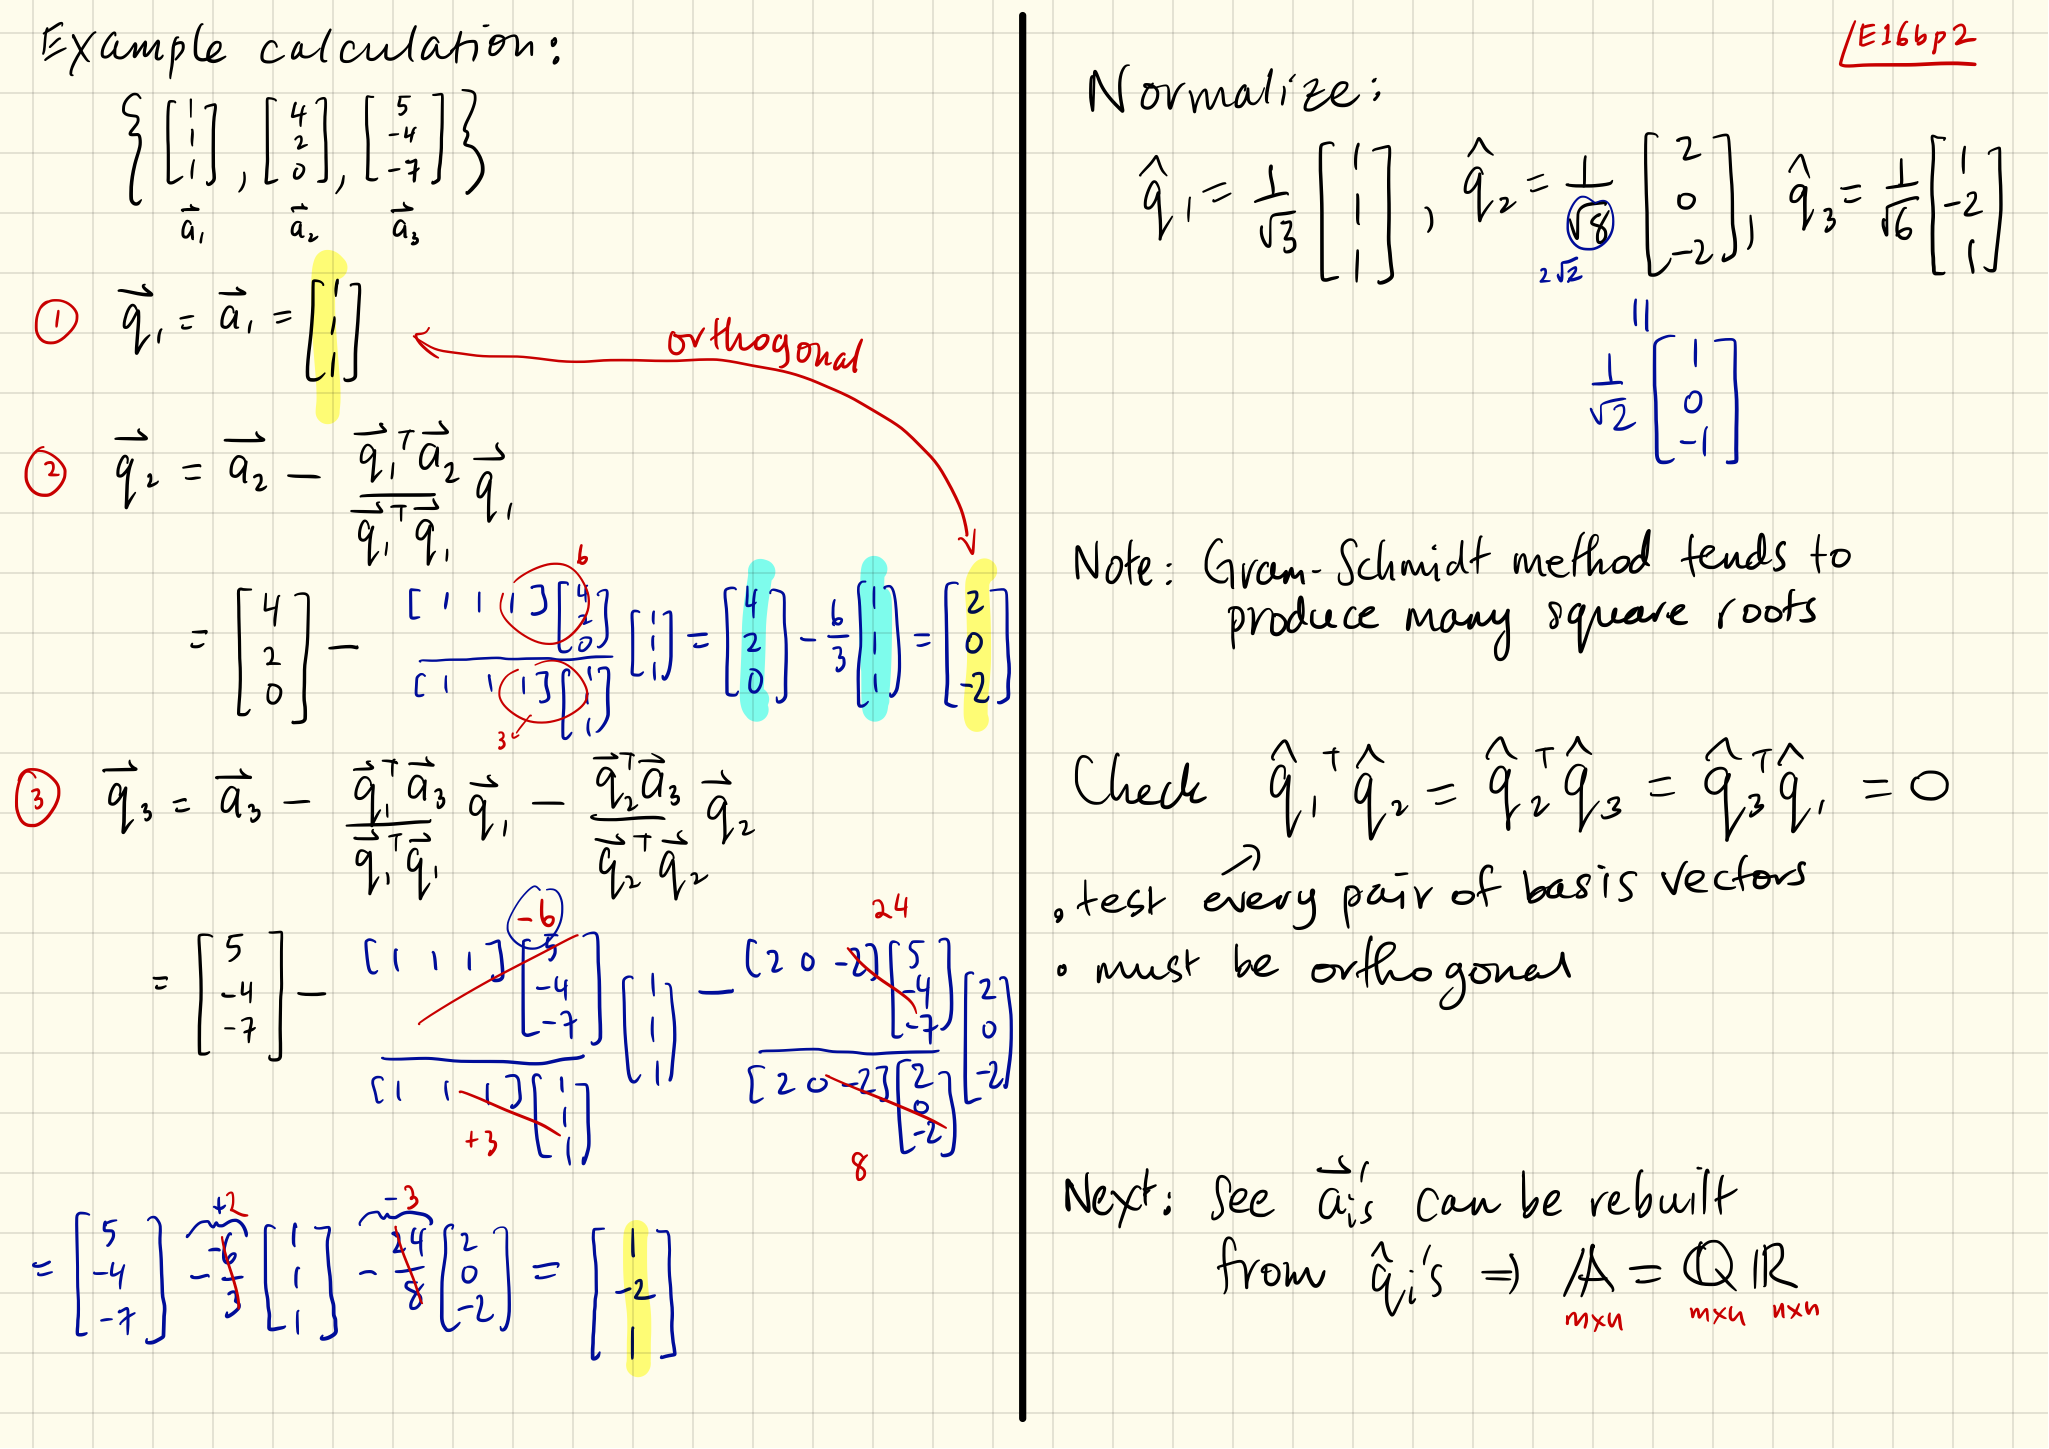 Example calculation:
{ [1 1 1], [4 2 0], [5 -4 -7] }
a⃗₁ a⃗₂ a⃗₃
① q⃗₁ = a⃗₁ = [1 1 1]
orthogonal
② q⃗₂ = a⃗₂ − (q⃗₁ᵀ a⃗₂ / q⃗₁ᵀ q⃗₁) q⃗₁
= [4 2 0] − ([1 1 1][4 2 0] / [1 1 1][1 1 1]) [1 1 1] = [4 2 0] − 6/3 [1 1 1] = [2 0 -2]
6
3
③ q⃗₃ = a⃗₃ − (q⃗₁ᵀ a⃗₃ / q⃗₁ᵀ q⃗₁) q⃗₁ − (q⃗₂ᵀ a⃗₃ / q⃗₂ᵀ q⃗₂) q⃗₂
-6 24
= [5 -4 -7] − ([1 1 1][5 -4 -7] / [1 1 1][1 1 1]) [1 1 1] − ([2 0 -2][5 -4 -7] / [2 0 -2][2 0 -2]) [2 0 -2]
+3 8
+2 -3
= [5 -4 -7] − -6/3 [1 1 1] − 24/8 [2 0 -2] = [1 -2 1]
/E166p2
Normalize:
q̂₁ = 1/√3 [1 1 1], q̂₂ = 1/√8 [2 0 -2], q̂₃ = 1/√6 [1 -2 1]
2√2
=
1/√2 [1 0 -1]
Note: Gram-Schmidt method tends to
produce many square roots
Check q̂₁ᵀ q̂₂ = q̂₂ᵀ q̂₃ = q̂₃ᵀ q̂₁ = 0
• test every pair of basis vectors
• must be orthogonal
Next: See a⃗ᵢ's can be rebuilt
from q̂ᵢ's ⇒ A = QR
m×n m×n n×n